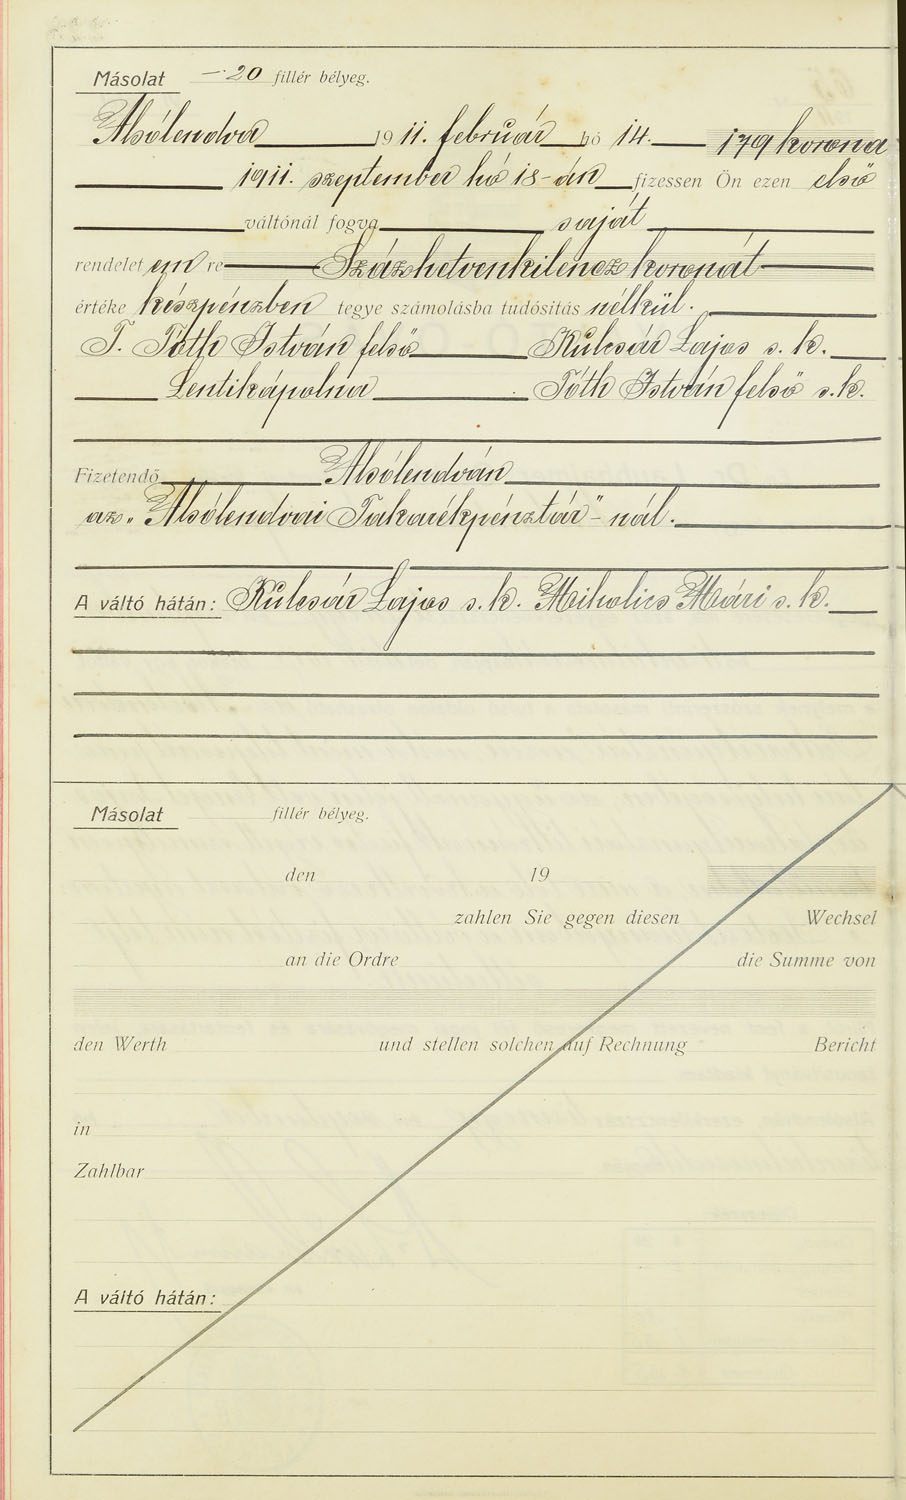 Másolat —·20 fillér bélyeg.
Alsólendva 1911. február hó 14. 179 korona
1911. szeptember hó 18-án fizessen Ön ezen első
váltónál fogva saját
rendeletem re Százhetvenkilencz koronát
értéke készpénzben tegye számolásba tudósítás nélkül.
T. Tóth István felső Kulcsár Lajos s. k.
Lentikápolna Tóth István felső s.k.
Fizetendő Alsólendván
az „Alsólendvai Takarékpénztár"-nál.
A váltó hátán: Kulcsár Lajos s. k. Mihalics Mári s. k.
Másolat fillér bélyeg.
den 19
zahlen Sie gegen diesen Wechsel
an die Ordre die Summe von
den Werth und stellen solchen auf Rechnung Bericht
in
Zahlbar
A váltó hátán: